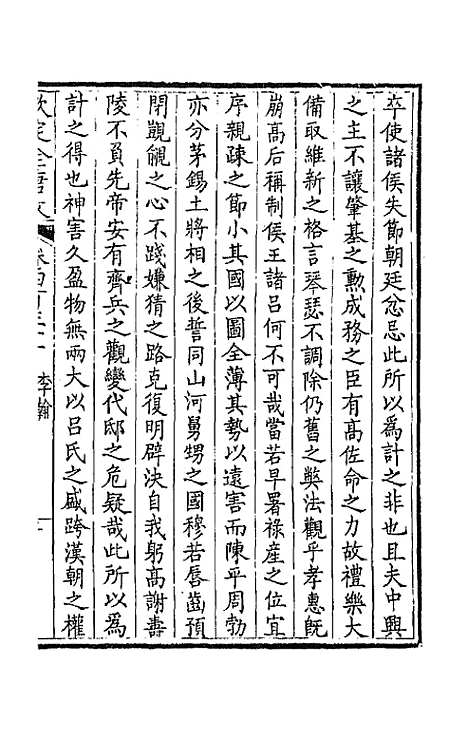 卒使諸侯失節朝廷忿忌此所以為計之非也且夫中興
之主不讓肇基之勲成務之臣有高佐命之力故禮樂大
備取維新之格言琴瑟不調除仍舊之獘法觀乎孝惠旣
崩高后稱制侯王諸呂何不可哉當若早署祿産之位宜
序親疎之節小其國以圖全薄其勢以遠害而陳平周勃
亦分茅錫土將相之後誓同山河舅甥之國穆若唇齒預
閉覬覦之心不踐嫌猜之路克復明辟決自我躬高謝壽
陵不負先帝安有齊兵之觀變代邸之危疑哉此所以為
計之得也神害久盈物無兩大以呂氏之盛跨漢朝之權
欽定全唐文 卷四百三十一 李翰